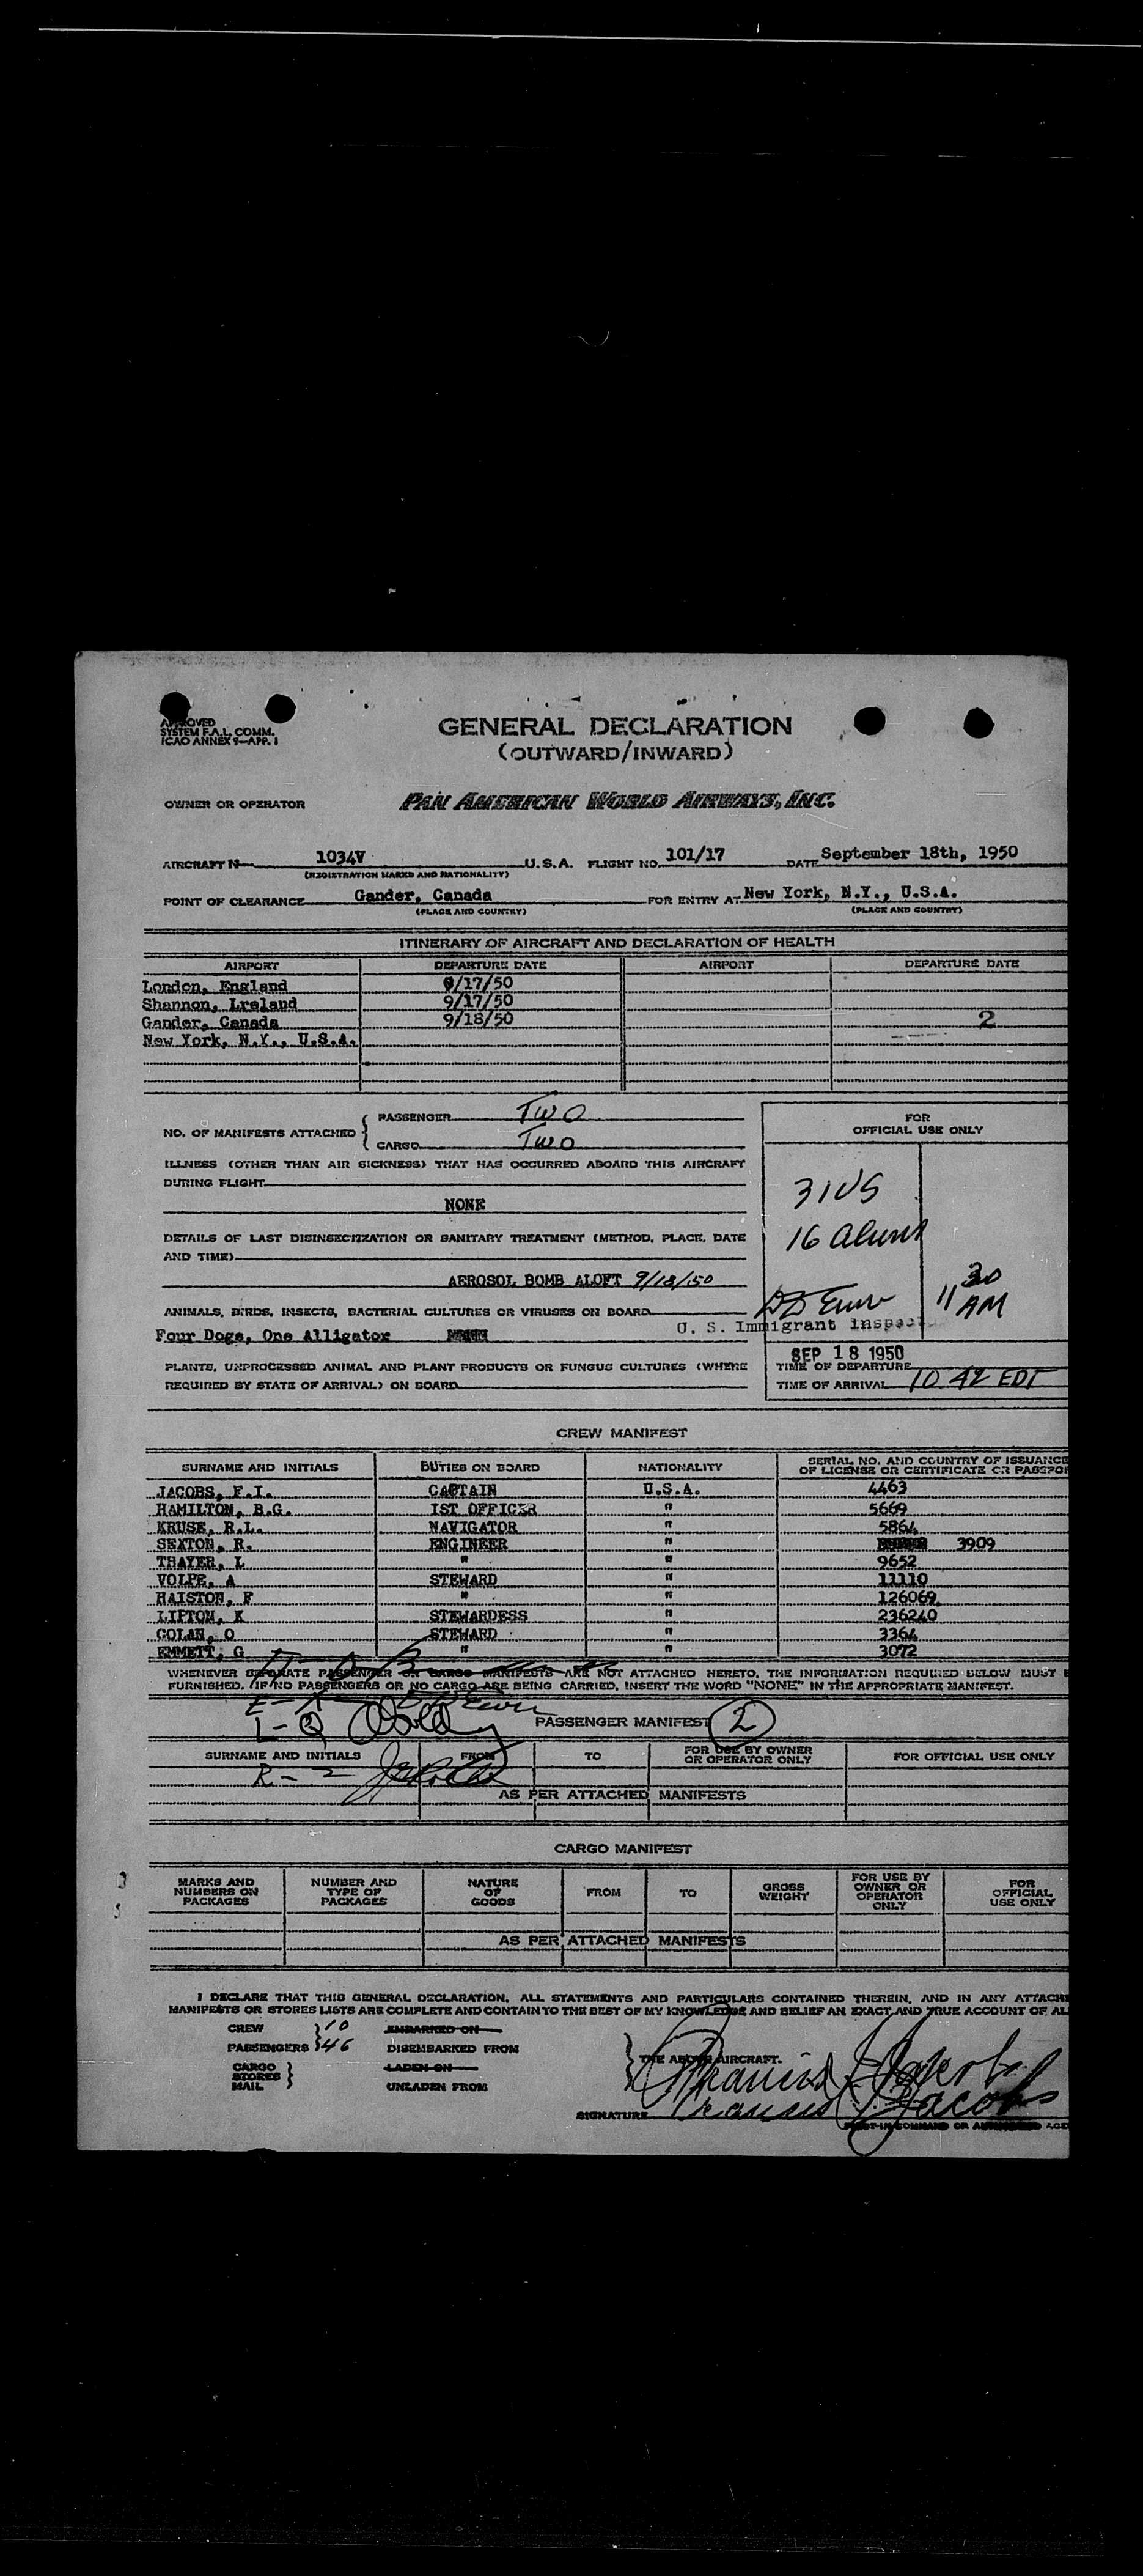 APPROVED
SYSTEM F.A.L. COMM.
ICAO ANNEX 9—APP. 1
GENERAL DECLARATION
(OUTWARD/INWARD)
OWNER OR OPERATOR
PAN AMERICAN WORLD AIRWAYS, INC.
AIRCRAFT N— 1034V U.S.A. FLIGHT NO. 101/17 DATE September 18th, 1950
(REGISTRATION MARKS AND NATIONALITY)
POINT OF CLEARANCE Gander, Canada FOR ENTRY AT New York, N.Y., U.S.A.
(PLACE AND COUNTRY) (PLACE AND COUNTRY)
ITINERARY OF AIRCRAFT AND DECLARATION OF HEALTH
AIRPORT DEPARTURE DATE AIRPORT DEPARTURE DATE
London, England 9/17/50
Shannon, Lreland 9/17/50
Gander, Canada 9/18/50 2
New York, N.Y., U.S.A.
NO. OF MANIFESTS ATTACHED { PASSENGER Two
CARGO Two
ILLNESS (OTHER THAN AIR SICKNESS) THAT HAS OCCURRED ABOARD THIS AIRCRAFT
DURING FLIGHT
NONE
DETAILS OF LAST DISINSECTIZATION OR SANITARY TREATMENT (METHOD, PLACE, DATE
AND TIME)
AEROSOL BOMB ALOFT 9/18/50
ANIMALS, BIRDS, INSECTS, BACTERIAL CULTURES OR VIRUSES ON BOARD
Four Dogs, One Alligator
PLANTS, UNPROCESSED ANIMAL AND PLANT PRODUCTS OR FUNGUS CULTURES (WHERE
REQUIRED BY STATE OF ARRIVAL) ON BOARD
FOR
OFFICIAL USE ONLY
31 US
16 aliens
11 30
AM
U. S. Immigrant Inspector
SEP 18 1950
TIME OF DEPARTURE
TIME OF ARRIVAL 10 42 EDT
CREW MANIFEST
SURNAME AND INITIALS DUTIES ON BOARD NATIONALITY SERIAL NO. AND COUNTRY OF ISSUANCE
OF LICENSE OR CERTIFICATE OR PASSPOR
JACOBS, F.I. CAPTAIN U.S.A. 4463
HAMILTON, B.G. IST OFFICER " 5669
KRUSE, R.L. NAVIGATOR " 5864
SEXTON, R. ENGINEER " 3909
THAYER, L " " 9652
VOLPE, A STEWARD " 11110
HAISTON, F " " 126069
LIPTON, K STEWARDESS " 236240
COLAN, O STEWARD " 3364
EMMETT, G " " 3072
WHENEVER SEPARATE PASSENGER OR CARGO MANIFESTS ARE NOT ATTACHED HERETO, THE INFORMATION REQUIRED BELOW MUST B
FURNISHED. IF NO PASSENGERS OR NO CARGO ARE BEING CARRIED, INSERT THE WORD "NONE" IN THE APPROPRIATE MANIFEST.
E-K
L-Q
PASSENGER MANIFEST 2
SURNAME AND INITIALS FROM TO FOR USE BY OWNER
OR OPERATOR ONLY FOR OFFICIAL USE ONLY
R-Z
AS PER ATTACHED MANIFESTS
CARGO MANIFEST
MARKS AND
NUMBERS ON
PACKAGES
NUMBER AND
TYPE OF
PACKAGES
NATURE
OF
GOODS
FROM
TO
GROSS
WEIGHT
FOR USE BY
OWNER OR
OPERATOR
ONLY
FOR
OFFICIAL
USE ONLY
AS PER ATTACHED MANIFESTS
I DECLARE THAT THIS GENERAL DECLARATION, ALL STATEMENTS AND PARTICULARS CONTAINED THEREIN, AND IN ANY ATTACH
MANIFESTS OR STORES LISTS ARE COMPLETE AND CONTAIN TO THE BEST OF MY KNOWLEDGE AND BELIEF AN EXACT AND TRUE ACCOUNT OF AL
CREW 10 EMBARKED ON
PASSENGERS 46 DISEMBARKED FROM
CARGO
STORES
MAIL
LADEN ON
UNLADEN FROM
THE ABOVE AIRCRAFT.
Francis I Jacobs
SIGNATURE Francis I. Jacobs
PILOT-IN-COMMAND OR AUTHORIZED AGE